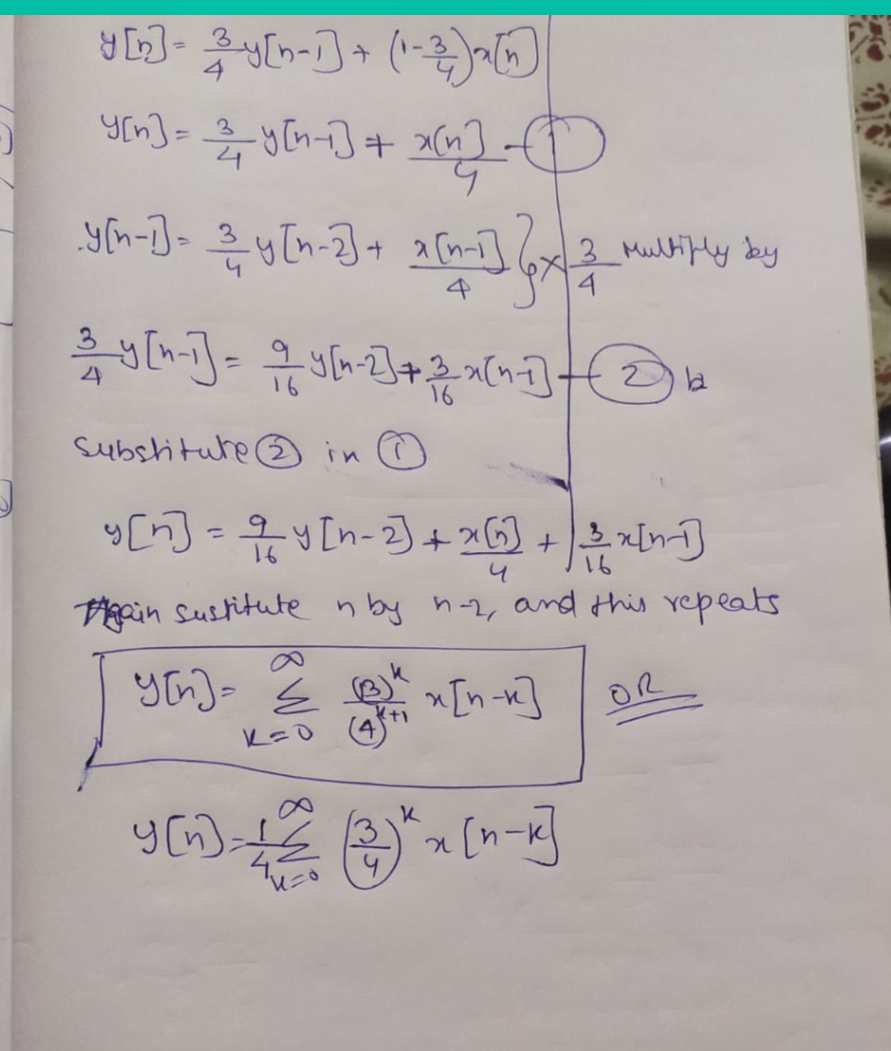 y[n] = 3/4 y[n-1] + (1-3/4) x[n]
y[n] = 3/4 y[n-1] + x[n]/4 - ①
y[n-1] = 3/4 y[n-2] + x[n-1]/4 } × 3/4 Multiply by
3/4 y[n-1] = 9/16 y[n-2] + 3/16 x[n-1] - ②
substitute ② in ①
y[n] = 9/16 y[n-2] + x[n]/4 + 3/16 x[n-1]
Again sustitute n by n-2, and this repeats
y[n] = ∞ Σ k=0 (3)^k/(4)^k+1 x[n-k] OR
y[n] = 1/4 ∞ Σ k=0 (3/4)^k x[n-k]